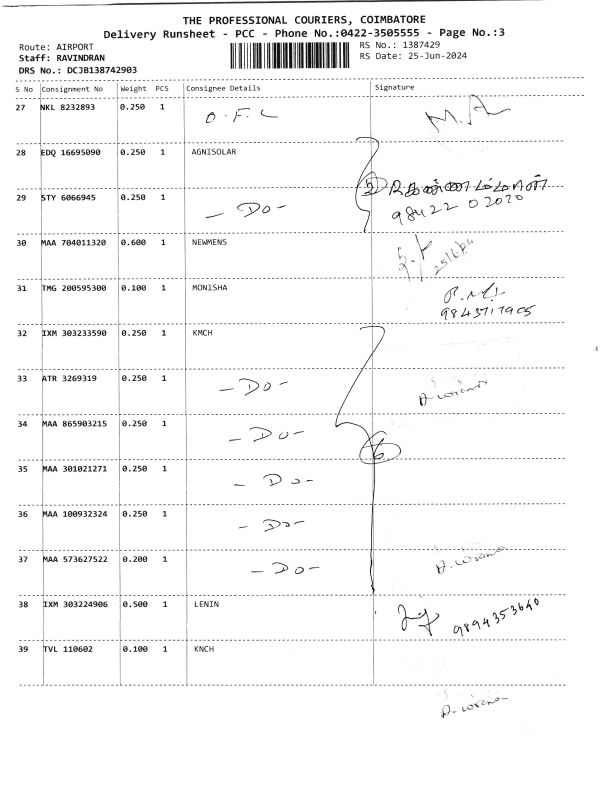 THE PROFESSIONAL COURIERS, COIMBATORE
Delivery Runsheet - PCC - Phone No.:0422-3505555 - Page No.:3
Route: AIRPORT RS No.: 1387429
Staff: RAVINDRAN RS Date: 25-Jun-2024
DRS No.: DCJB138742903
S No Consignment No Weight PCS Consignee Details Signature
27 NKL 8232893 0.250 1 O.F.L M.A
28 EDQ 16695090 0.250 1 AGNISOLAR
29 STY 6066945 0.250 1 - Do - 98422 02020
30 MAA 704011320 0.600 1 NEWMENS 25/6/24
31 TMG 200595300 0.100 1 MONISHA
9843717905
32 IXM 303233590 0.250 1 KMCH
33 ATR 3269319 0.250 1 - Do -
34 MAA 865903215 0.250 1 - Do - 6
35 MAA 301021271 0.250 1 - Do -
36 MAA 100932324 0.250 1 - Do -
37 MAA 573627522 0.200 1 - Do -
38 IXM 303224906 0.500 1 LENIN 9894353640
39 TVL 110602 0.100 1 KNCH